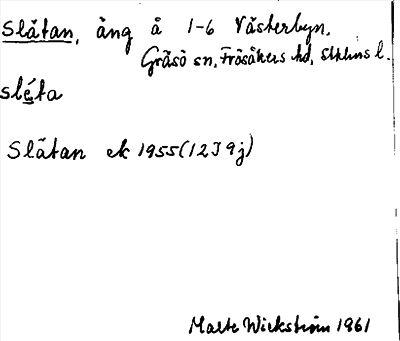 Slätan, äng å 1-6 Västerbyn,
Gräsö sn, Frösåkers hd, Sthlms l.
sleta
Slätan ek 1955 (12J 9j)
Märta Wickström 1961